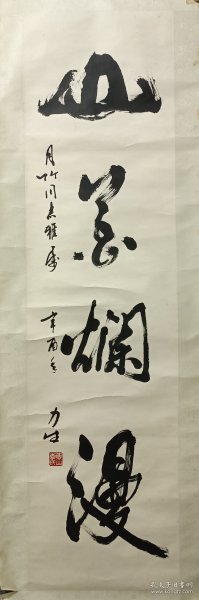 山花烂漫
月竹同志雅属
辛酉冬
力生
孔夫子旧书网